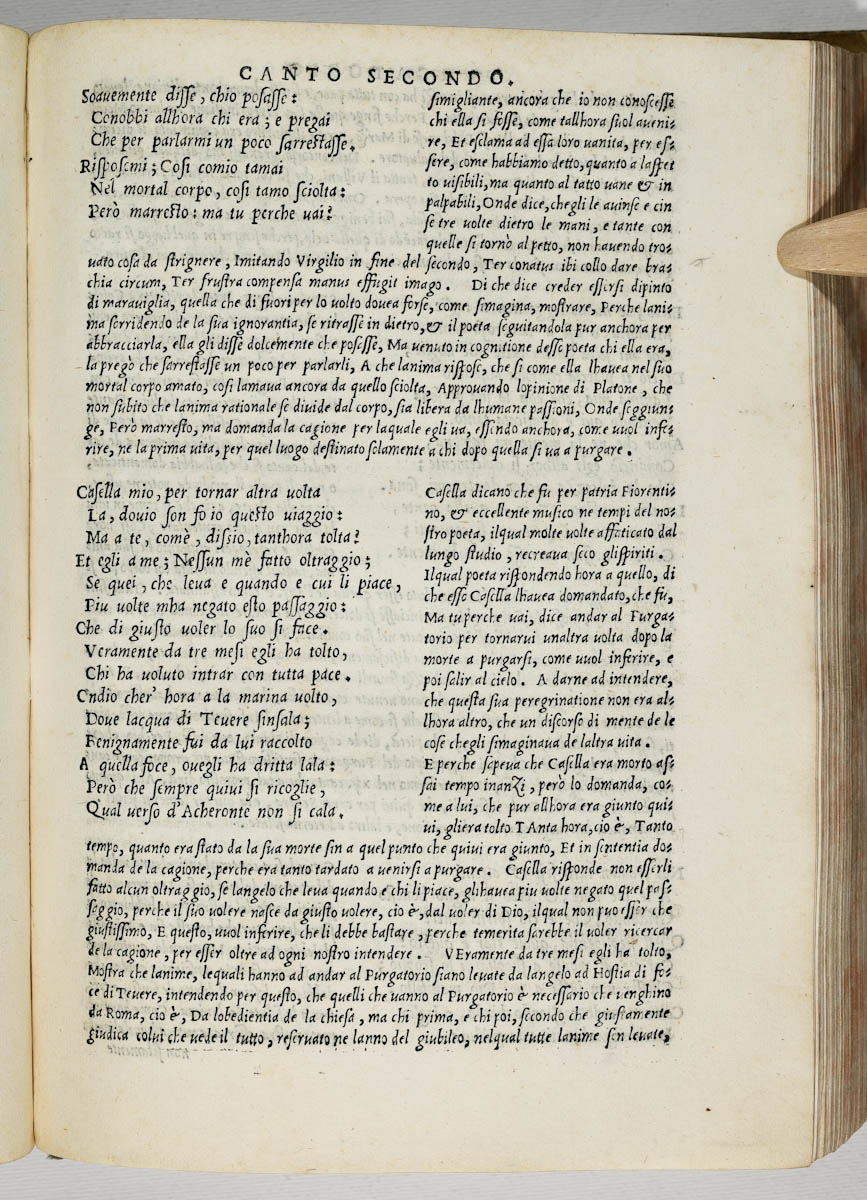 CANTO SECONDO.
Soauemente disse, chio posasse:
Conobbi allhora chi era; e pregai
Che per parlarmi un poco sarrestasse.
Risposemi; Cosi comio tamai
Nel mortal corpo, cosi tamo sciolta:
Però marresto: ma tu perche uai?
simigliante, ancora che io non conoscesse
chi ella si fosse, come tallhora suol aueni⸗
re, Et esclama ad essa loro uanita, per es⸗
sere, come habbiamo detto, quanto a laspet
to uisibili, ma quanto al tatto uane & in
palpabili, Onde dice, chegli le auinse e cin
se tre uolte dietro le mani, e tante con
quelle si tornò al petto, non hauendo tro⸗
uato cosa da strignere, Imitando Virgilio in fine del secondo, Ter conatus ibi collo dare bra⸗
chia circum, Ter frustra compensa manus effugit imago. Di che dice creder essersi dipinto
di marauiglia, quella che di fuori per lo uolto douea forse, come simagina, mostrare, Perche lani⸗
ma sorridendo de la sua ignorantia, se ritrasse in dietro, & il poeta seguitandola pur anchora per
abbracciarla, ella gli disse dolcemente che posesse, Ma uenuto in cognitione desso poeta chi ella era,
la pregò che sarrestasse un poco per parlarli, A che lanima rispose, che si come ella lhauea nel suo
mortal corpo amato, cosi lamaua ancora da quello sciolta, Approuando lopinione di Platone, che
non subito che lanima rationale se diuide dal corpo, sia libera da lhumane passioni, Onde seggiun⸗
ge, Però marresto, ma domanda la cagione per laquale egli ua, essendo anchora, come uuol infe⸗
rire, ne la prima uita, per quel luogo destinato solamente a chi dopo quella si ua a purgare.
Casella mio, per tornar altra uolta
La, douio son fo io questo uiaggio:
Ma a te, comè, dissio, tanthora tolta?
Et egli a me; Nessun mè fatto oltraggio;
Se quei, che leua e quando e cui li piace,
Piu uolte mha negato esto passaggio:
Che di giusto uoler lo suo si face.
Veramente da tre mesi egli ha tolto,
Chi ha uoluto intrar con tutta pace.
Ondio cher' hora a la marina uolto,
Doue lacqua di Teuere sinsala;
Benignamente fui da lui raccolto
A quella foce, ouegli ha dritta lala:
Però che sempre quiui si ricoglie,
Qual uerso d'Acheronte non si cala.
Casella dicano che fu per patria Fiorenti⸗
no, & eccellente musico ne tempi del nos⸗
stro poeta, ilqual molte uolte affaticato dal
lungo studio, recreaua seco glispiriti.
Ilqual poeta rispondendo hora a quello, di
che esso Casella lhauea domandato, che fu,
Ma tu perche uai, dice andar al Purga⸗
torio per tornarui unaltra uolta dopo la
morte a purgarsi, come uuol inferire, e
poi salir al cielo. A darne ad intendere,
che questa sua peregrinatione non era al⸗
lhora altro, che un discorso di mente de le
cose chegli simaginaua de laltra uita.
E perche sapeua che Casella era morto as⸗
sai tempo inanzi, però lo domanda, co⸗
me a lui, che pur allhora era giunto qui⸗
ui, gliera tolto TAnta hora, cio è, Tanto
tempo, quanto era stato da la sua morte sin a quel punto che quiui era giunto, Et in sententia do⸗
manda de la cagione, perche era tanto tardato a uenirsi a purgare. Casella risponde non esserli
fatto alcun oltraggio, se langelo che leua quando e chi li piace, glihauea piu uolte negato quel pas⸗
saggio, perche il suo uolere nasce da giusto uolere, cio è, dal uoler di Dio, ilqual non puo esser che
giustissimo, E questo, uuol inferire, che li debbe bastare, perche temerita sarebbe il uoler ricercar
de la cagione, per esser oltre ad ogni nostro intendere. VEramente da tre mesi egli ha tolto,
Mostra che lanime, lequali hanno ad andar al Purgatorio siano leuate da langelo ad Hostia di fo⸗
ce di Teuere, intendendo per questo, che quelli che uanno al Purgatorio è necessario che uenghino
da Roma, cio è, Da lobedientia de la chiesa, ma chi prima, e chi poi, secondo che giustamente
giudica colui che uede il tutto, reseruato ne lanno del giubileo, nelqual tutte lanime son leuate,